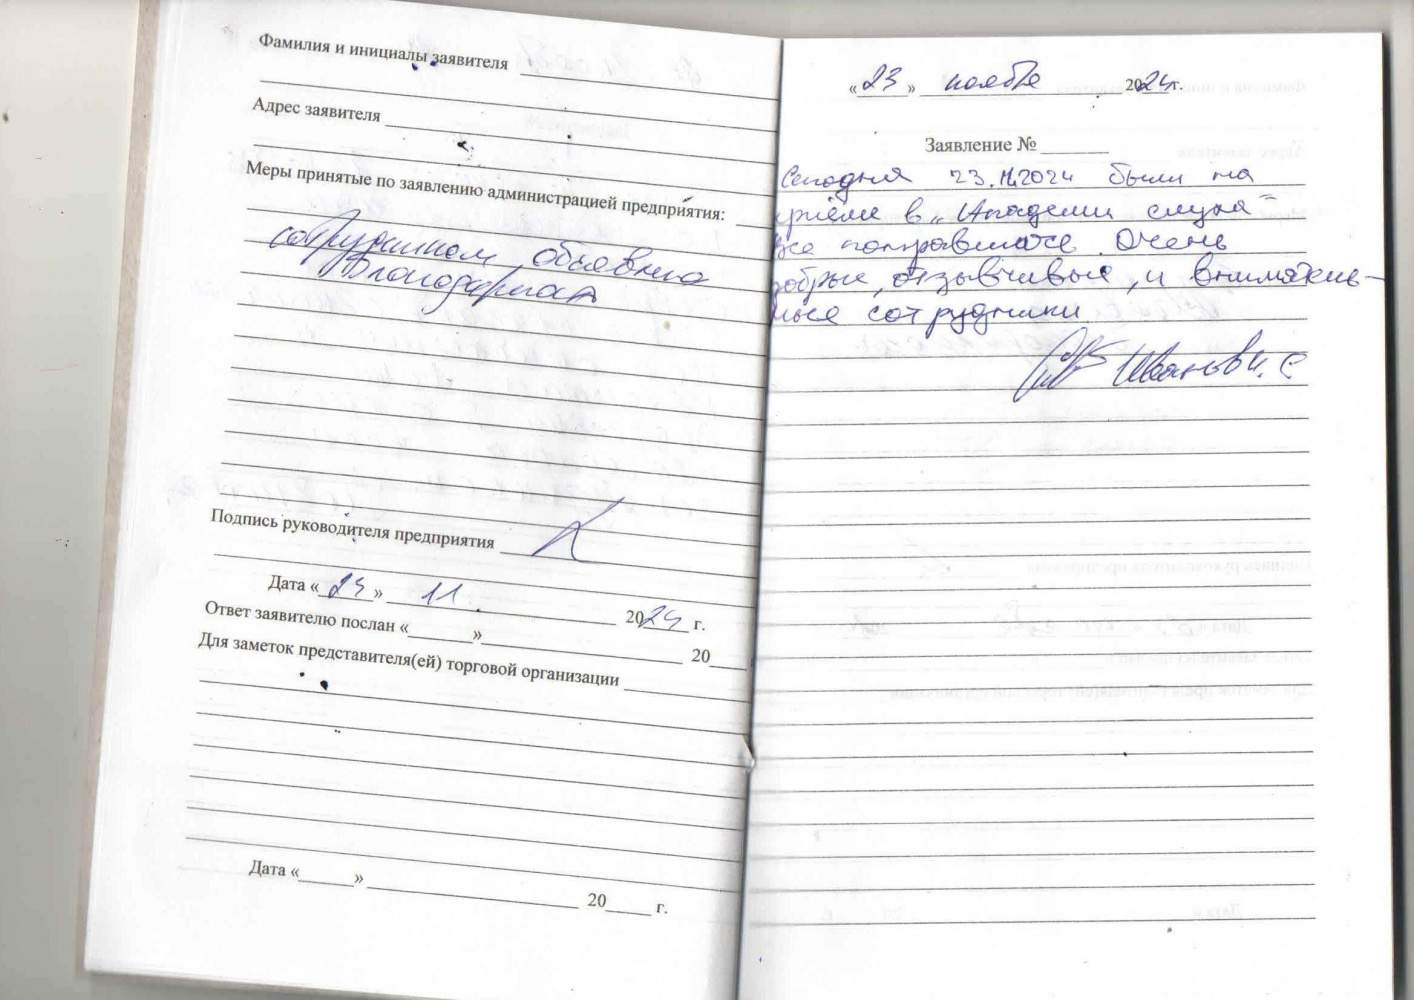 Фамилия и инициалы заявителя
Адрес заявителя
Меры принятые по заявлению администрацией предприятия:
сотрудникам объявлена
благодарность
Подпись руководителя предприятия
Дата «23» 11 2024 г.
Ответ заявителю послан «» 20
Для заметок представителя(ей) торговой организации
Дата «» 20 г.
«23» ноября 2024г.
Заявление №
Сегодня 23.11.2024 были на
приёме в „Академии слуха"
Все понравилось. Очень
добрые, отзывчивые, и вниматель-
ные сотрудники
Иванов И. С.